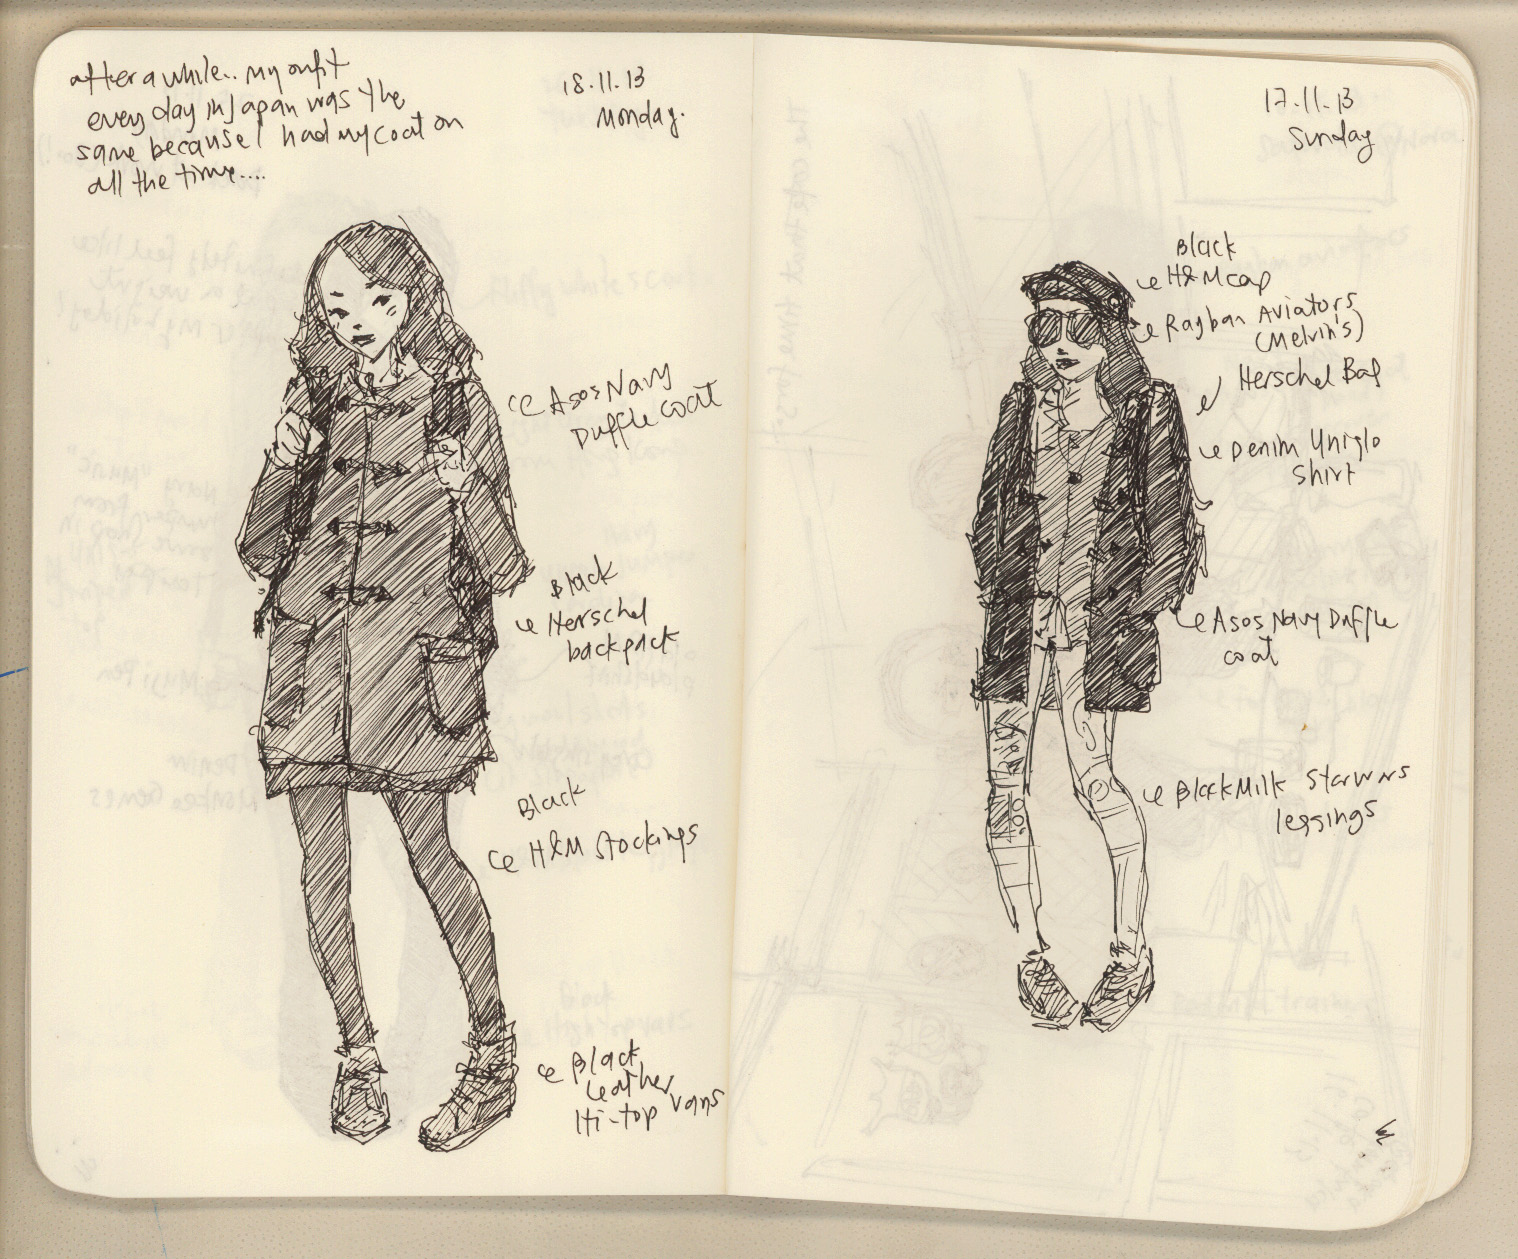 after a while.. my outfit
every day in Japan was the
same because I had my coat on
all the time....
18.11.13
Monday.
Asos Navy
Duffle coat
Black
Herschel
backpack
Black
H&M Stockings
Black
Leather
Hi-top Vans
17.11.13
Sunday
Black
H&M cap
Rayban Aviators
(Melvin's)
Herschel Bag
Denim Uniqlo
Shirt
Asos Navy Duffle
coat
BlackMilk Starwars
leggings